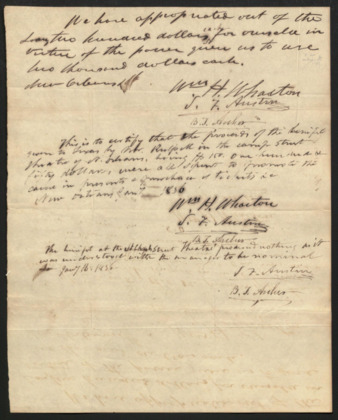 We have appropriated out of the
two hundred dollars each for ourselves in
virtue of the power given us to use
two thousand dollars each.
New Orleans
Wm H. Wharton
S. F. Austin
B. T. Archer
This is to certify that the proceeds of the benefit
given to Texas by in the camp Street
Theatre of N. Orleans, being $150. One hundred &
fifty dollars, were all spent to promote the
cause in presents & purchase of tickets &c
New Orleans Jan 1836
Wm H. Wharton
S. F. Austin
B. T. Archer
The benefit at the Street Theatre produced nothing as it
was understood with the manager to be nominal
Jany 16. 1836
S. F. Austin
B. T. Archer